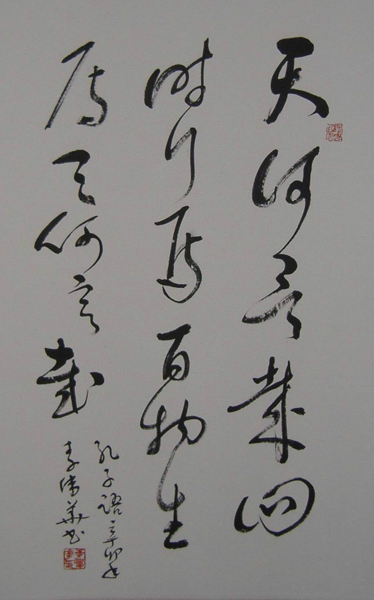 天何言哉四
时行焉百物生
焉天何言哉
孔子语辛卯年
李伟华书